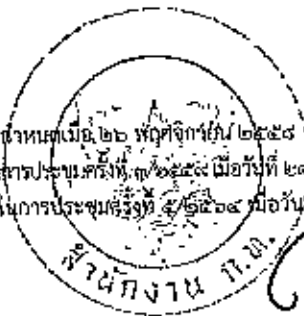 กำหนดเมื่อ ๒๖ พฤศจิกายน ๒๕๕๘
การประชุมครั้งที่ ๗/๒๕๕๘ เมื่อวันที่ ๒๘
ในการประชุมครั้งที่ ๕/๒๕๖๔ เมื่อวัน
สำนักงาน ก.ท.